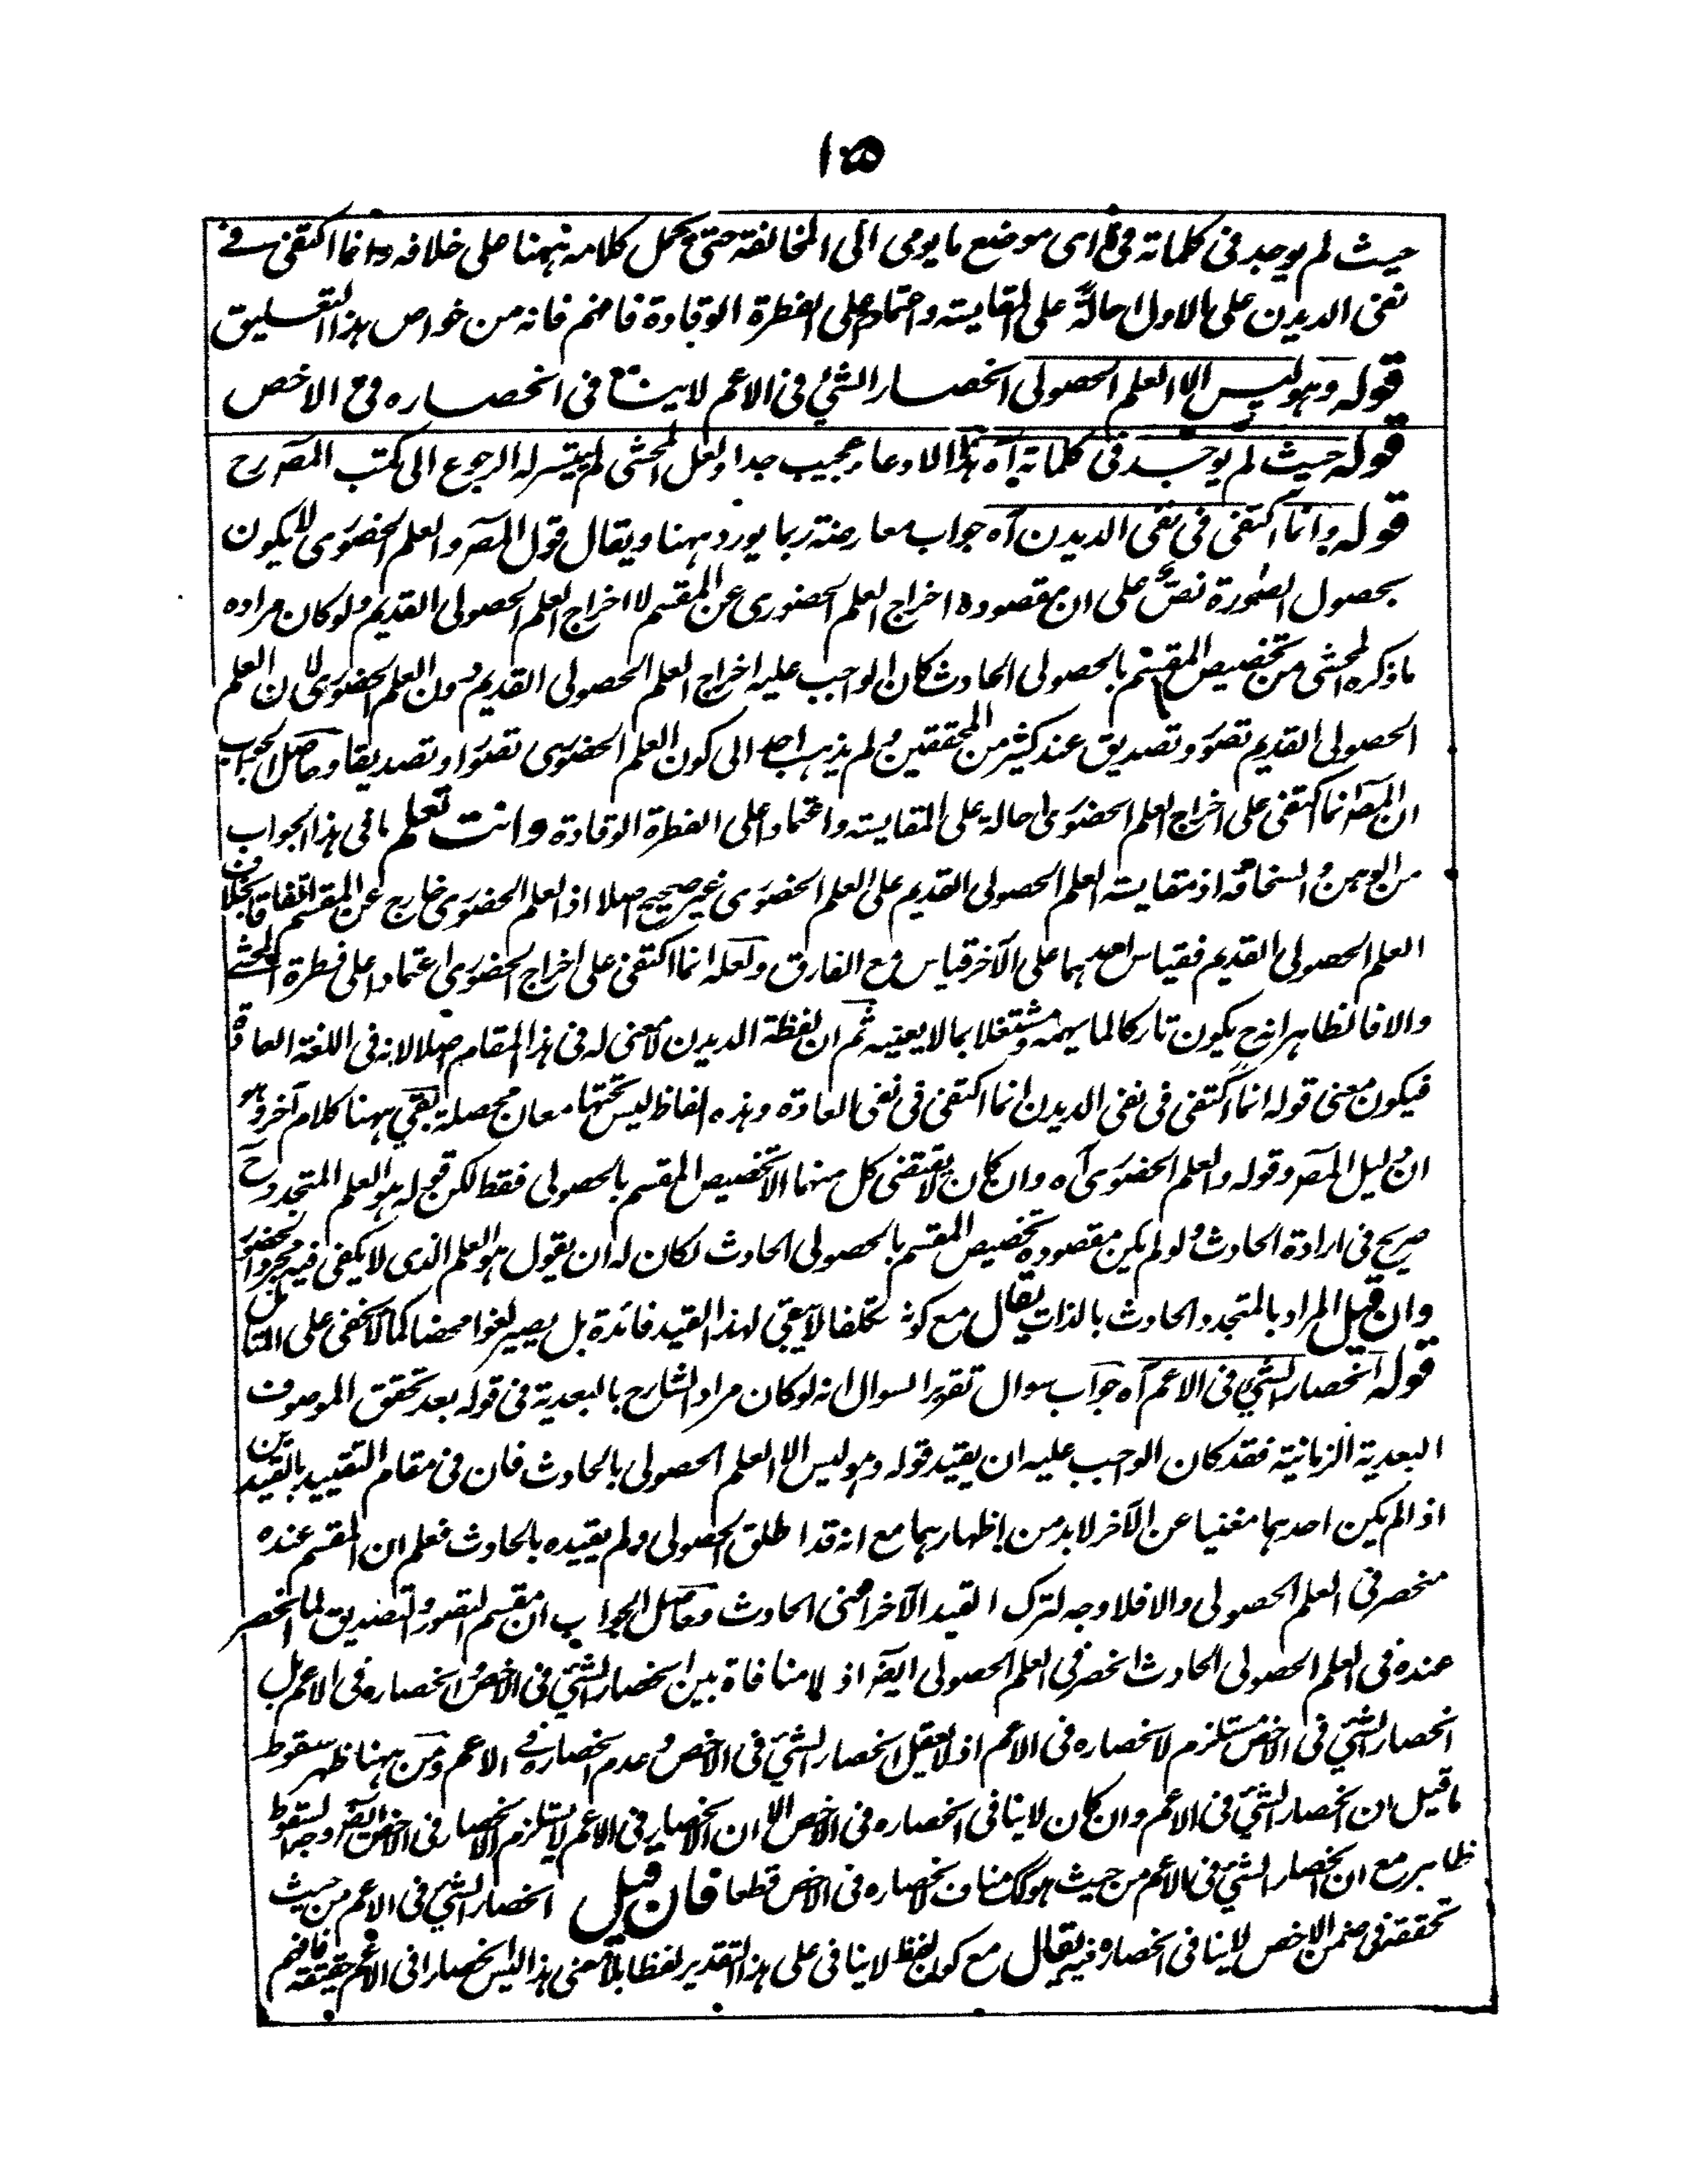 ١٥
حيث لم يوجد فى كلماته فى اى موضع ما يومى الى المخالفة حتى يحمل كلامه ههنا على خلافه وانما اكتفى فے
نفى الديدن على الاول احالةً على المقايسته واعتمادا على الفطرة الوقادة فافهم فانه من خواص هذا التعليق
قوله وهو ليس الا العلم الحصولى انحصار الشئ فى الاعم لاينافى انحصاره فى الاخص
قوله حيث لم يوجد فى كلماته آه هذا الادعاء عجيب جدا ولعل المحشى لم يتيسر له الرجوع الى كتب المصـ رح
قوله وانما اكتفى فى نفى الديدن آه جواب معارضته ربما يورد ههنا ويقال قول المصـ والعلم الحضورى لا يكون
بحصول الصورة نصٌّ على ان مقصوده اخراج العلم الحضورى عن المقسم لا اخراج العلم الحصولى القديم ولو كان مراده
ما ذكره المحشى من تخصيص المقسم بالحصولى الحادث كان الواجب عليه اخراج العلم الحصولى القديم دون العلم الحضورى لان العلم
الحصولى القديم تصور وتصديق عند كثير من المحققين ولم يذهب احد الى كون العلم الحضورى تصورا وتصديقا وحاصل الجواب
ان المصـ انما اكتفى على اخراج العلم الحضورى احالة على المقايسته واعتمادا على الفطرة الوقادة وانت تعلم ما فى هذا الجواب
من الوهن والسخافة اذ مقايسته العلم الحصولى القديم على العلم الحضورى غير صحيح اصلا اذ العلم الحضورى خارج عن المقسم اتفاقا بخلاف
العلم الحصولى القديم فقياس احدهما على الآخر قياس مع الفارق ولعله انما اكتفى على اخراج الحضورى اعتمادا على فطرة المحشے
والا فالظاهر انه ح يكون تاركا لما يهمه ومشتغلا بما لا يعنيه ثم ان لفظة الديدن لا معنى له فى هذا المقام اصلا لانه فى اللغة العادة
فيكون معنى قوله انما اكتفى فى نفى الديدن انما اكتفى فى نفى العادة وهذه الفاظ ليس تحتها معان محصلة بقى ههنا كلام آخر وهو
ان دليل المصـ وقوله والعلم الحضورى آه وان كان لا يقتضى كل منهما الا تخصيص المقسم بالحصولى فقط لكن قوله هو العلم المتجدد ح
صريح فى ارادة الحادث ولو لم يكن مقصوده تخصيص المقسم بالحصولى الحادث لكان له ان يقول هو العلم الذى لا يكفى فيه مجرد الحضور
وان قيل المراد بالمتجدد الحادث بالذات يقال مع كونه تكلفا لا يبقى لهذا القيد فائدة بل يصير لغوا محضا كما لا يخفى على المتأمل
قوله انحصار الشئ فى الاعم آه جواب سوال تقرير السوال انه لو كان مراد الشارح بالبعدية فى قوله بعد تحقق الموصوف
البعدية الزمانية فقد كان الواجب عليه ان يقيد قوله وهو ليس الا العلم الحصولى بالحادث فان فى مقام التقييد بالقيدين
اذا لم يكن احدهما مغنيا عن الآخر لابد من اظهارهما مع انه قد اطلق الحصولى ولم يقيده بالحادث فعلم ان المقسم عنده
منحصر فى العلم الحصولى والا فلا وجه لترك القيد الآخر اعنى الحادث وحاصل الجواب ان مقسم التصور والتصديق لما انحصر
عنده فى العلم الحصولى الحادث انحصر فى العلم الحصولى ايضـ اذ لا منافاة بين انحصار الشئ فى الاخص وانحصاره فى الاعم بل
انحصار الشئ فى الاخص مستلزم لانحصاره فى الاعم اذ لا يعقل انحصار الشئ فى الاخص وعدم انحصاره فے الاعم ومن ههنا ظهر سقوط
ما قيل ان انحصار الشئ فى الاعم وان كان لا ينافى انحصاره فى الاخص الا ان الانحصار فى الاعم لا يستلزم الانحصار فى الاخص ايضـ وجه السقوط
ظاهر مع ان انحصار الشئ فى الاعم من حيث هو كك مناف لانحصاره فى الاخص قطعا فان قيل انحصار الشئ فى الاعم من حيث
تحققه فى ضمن الاخص لا ينافى انحصاره فيه يقال مع كون لفظ لا ينافى على هذا التقدير لفظا بلا معنى هذا ليس انحصارا فى الاعم حقيقة فافهم